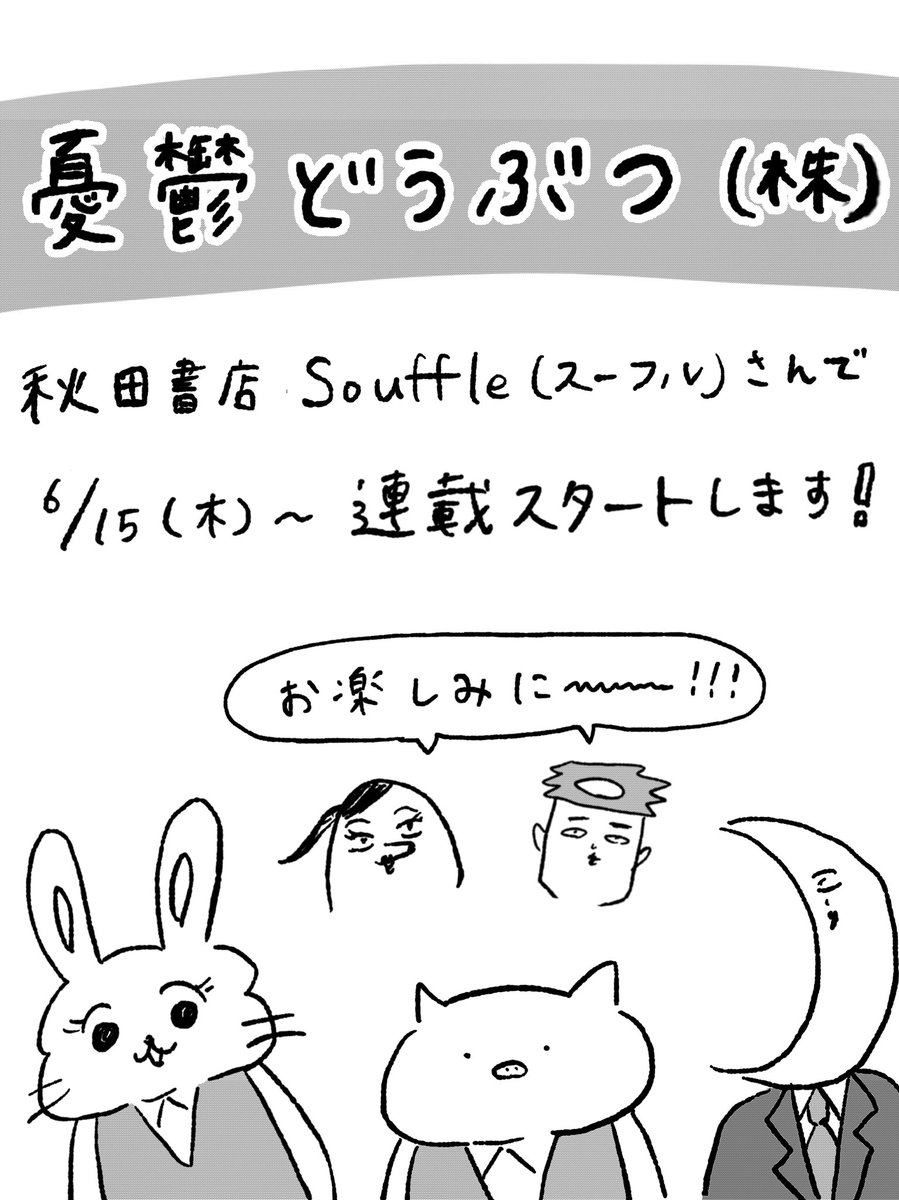 憂鬱どうぶつ(株)
秋田書店 Souffle(スーフル)さんで
6/15(木)~連載スタートします!
お楽しみに~~~!!!